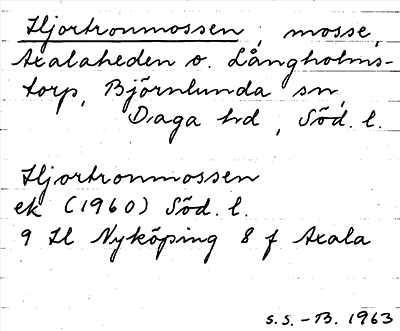 Hjortronmossen, mosse,
Axalaheden o. Långholms-
torp, Björnlunda sn,
Daga hd, Söd. l.
Hjortronmossen
ek (1960) Söd. l.
9 H Nyköping 8 f Axala
S.S.-B. 1963